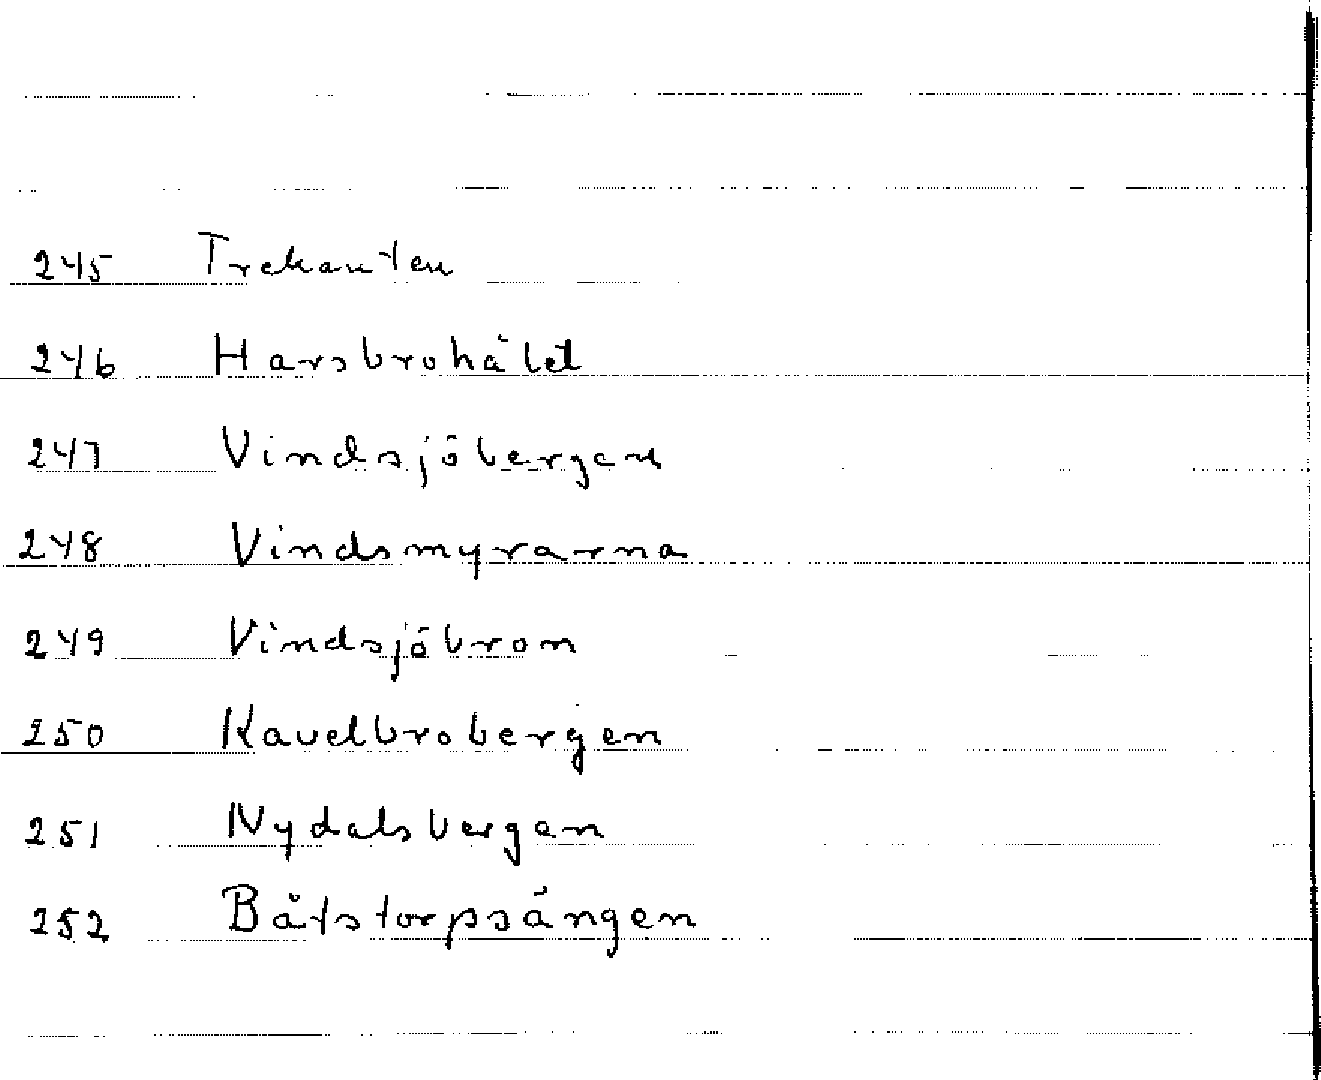 245 Trekanten
246 Harsbrohålet
247 Vindsjöbergen
248 Vindsmyrarna
249 Vindsjöbron
250 Kavelbrobergen
251 Nydalsbergen
252 Båtstorpsängen